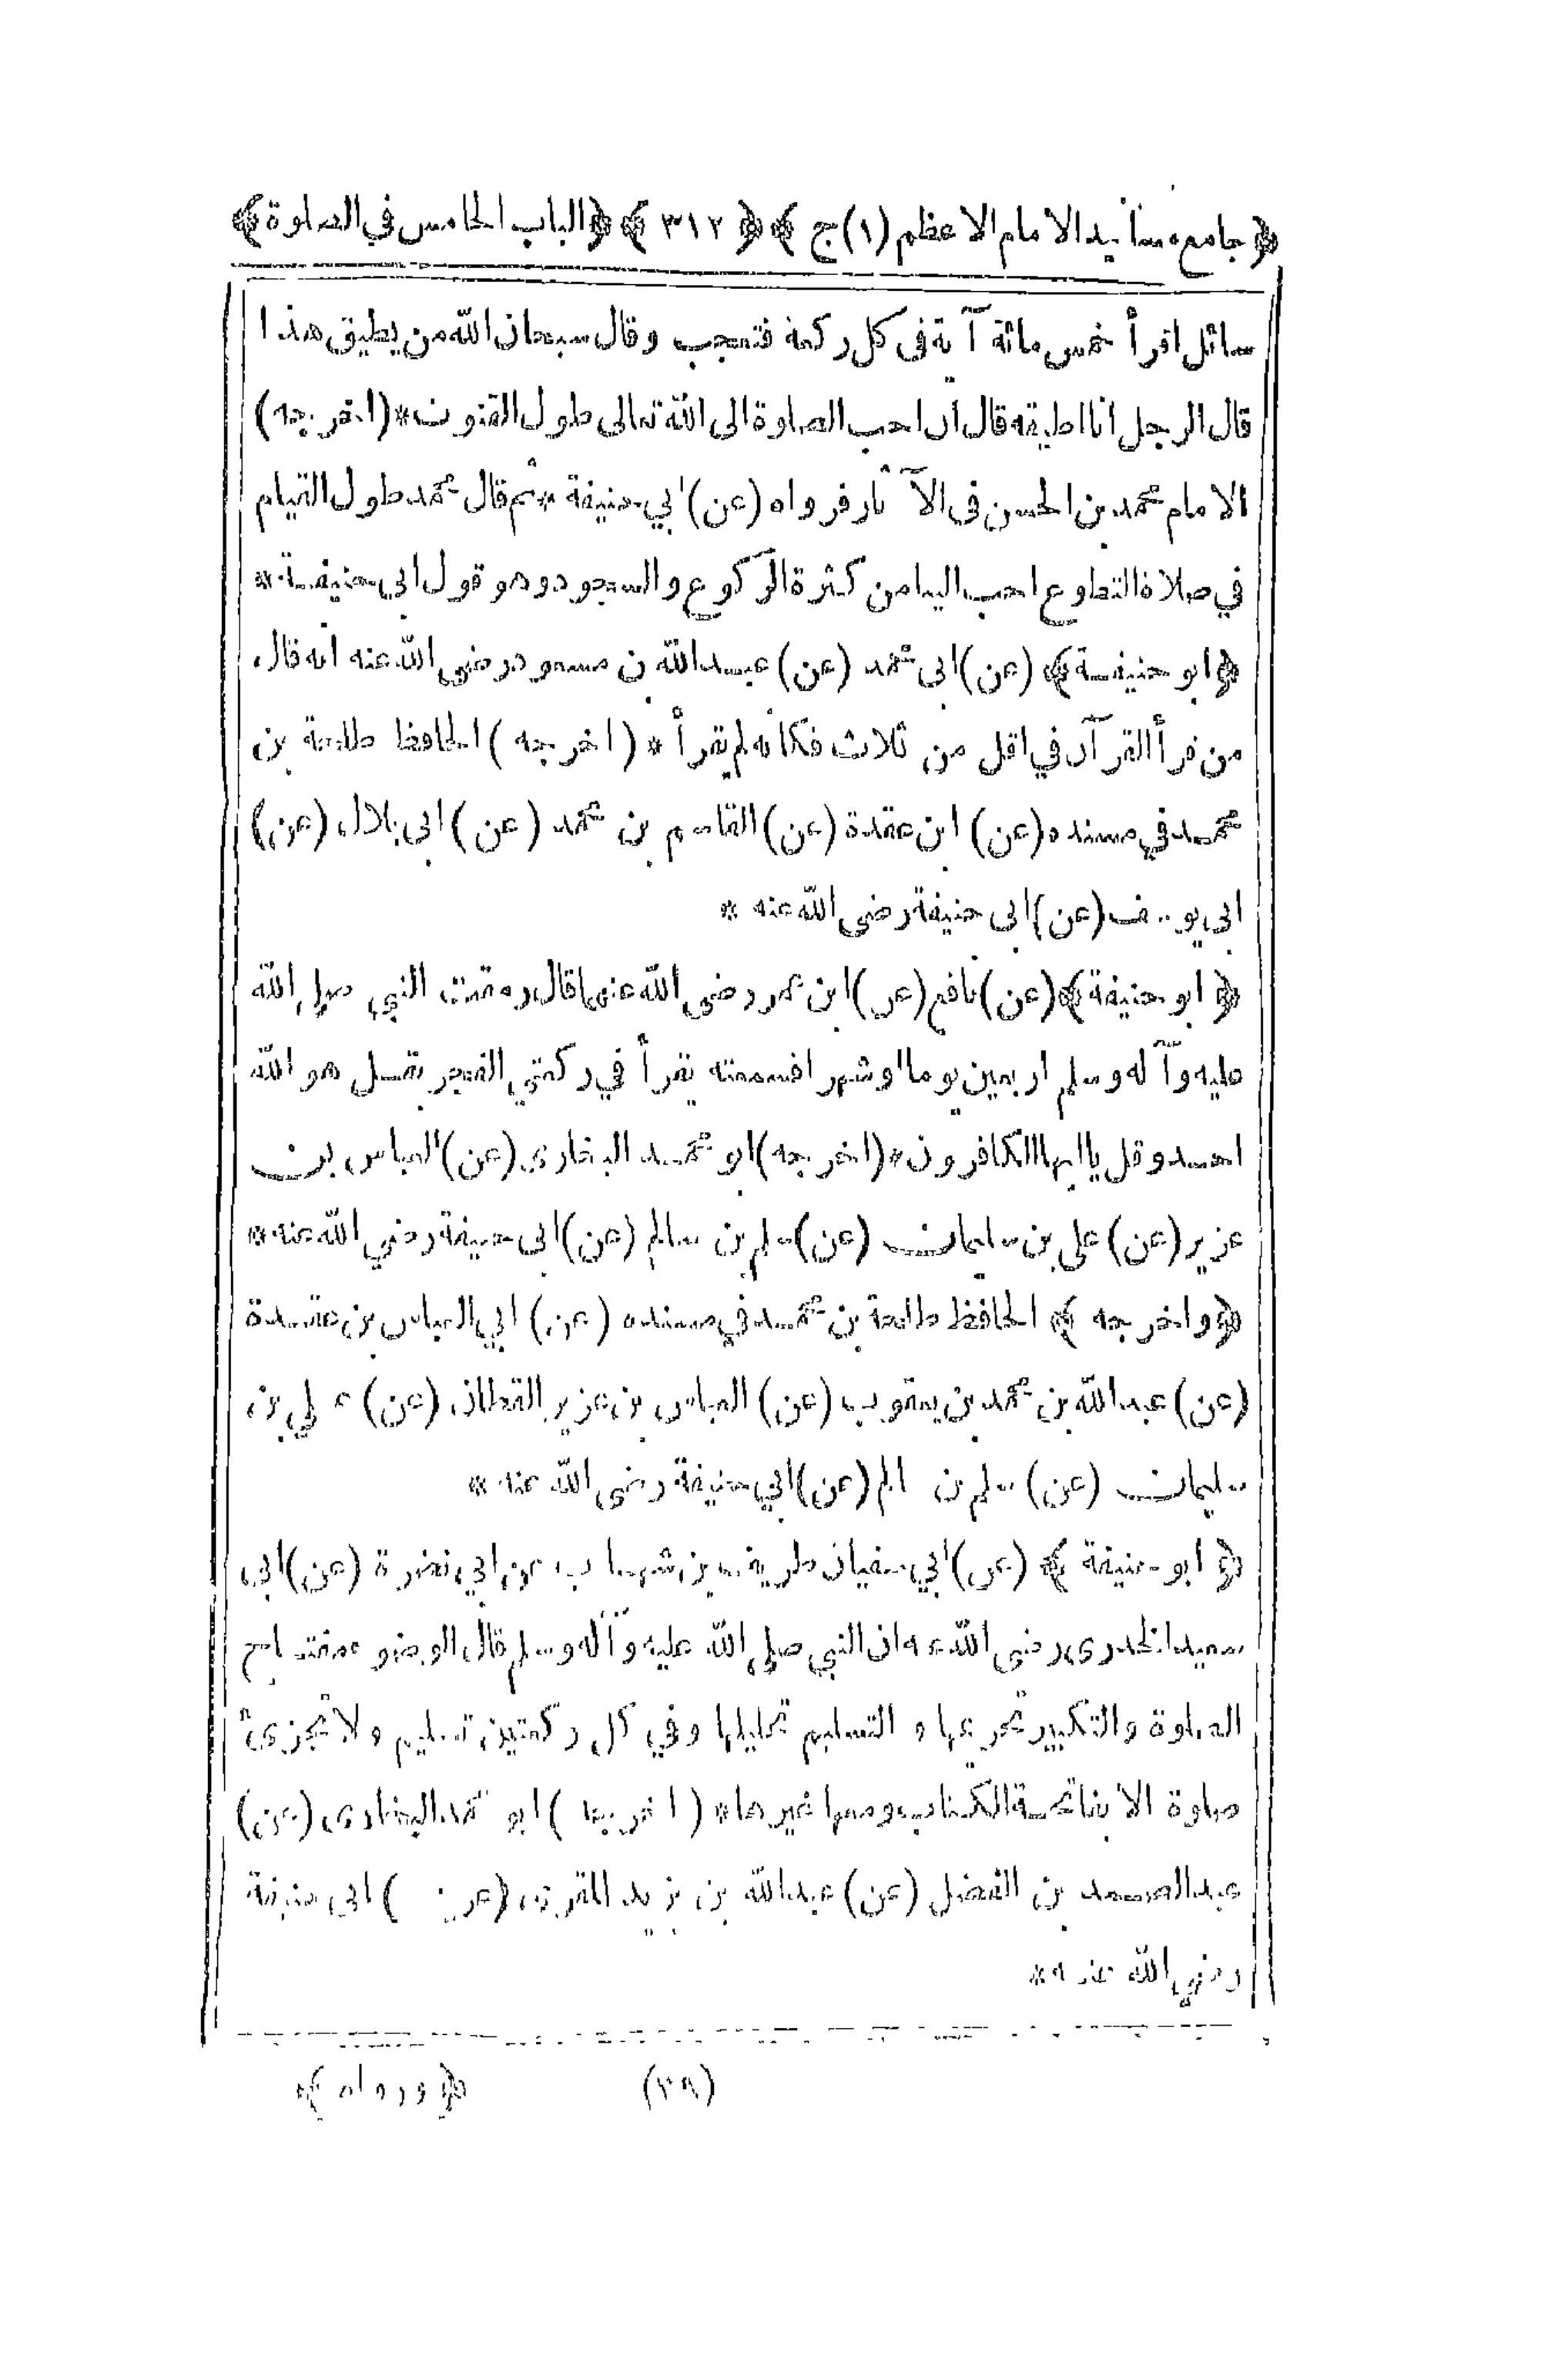 ﴿جامع مسانيد الامام الاعظم (١)ج﴾ ﴿٣١٢﴾ ﴿الباب الخامس في الصلوة﴾
سائل اقرأ خمس مائة آية فى كل ركعة فتعجب وقال سبحان الله من يطيق هذا
قال الرجل انا اطيقه قال ان احب الصلوة الى الله تعالى طول القنوت * (اخرجه)
الامام محمد بن الحسن فى الآثار فرواه (عن) ابي حنيفة * ثم قال محمد طول القيام
في صلاة التطوع احب الينا من كثرة الركوع والسجود وهو قول ابي حنيفة *
﴿ابو حنيفة﴾ (عن) ابى محمد (عن) عبد الله بن مسعود رضى الله عنه انه قال
من قرأ القرآن في اقل من ثلاث فكانه لم يقرأ * (اخرجه) الحافظ طلحة بن
محمد في مسنده (عن) ابن عقدة (عن) القاسم بن محمد (عن) ابى بلال (عن)
ابى يوسف (عن) ابى حنيفة رضى الله عنه *
﴿ابو حنيفة﴾ (عن) نافع (عن) ابن عمر رضى الله عنهما قال رمقت النبي صلى الله
عليه وآله وسلم اربعين يوما او شهرا فسمعته يقرأ في ركعتي الفجر بقل هو الله
احد وقل يا ايها الكافرون * (اخرجه) ابو محمد البخارى (عن) العباس بن
عزير (عن) على بن سليمان (عن) سلم بن سالم (عن) ابى حنيفة رضي الله عنه *
﴿واخرجه﴾ الحافظ طلحة بن محمد في مسنده (عن) ابي العباس بن عقدة
(عن) عبد الله بن محمد بن يعقوب (عن) العباس بن عزير القطان (عن) على بن
سليمان (عن) سلم بن سالم (عن) ابي حنيفة رضى الله عنه *
﴿ابو حنيفة﴾ (عن) ابي سفيان طريف بن شهاب عن ابي نضرة (عن) ابى
سعيد الخدرى رضى الله عنه ان النبي صلى الله عليه وآله وسلم قال الوضوء مفتاح
الصلوة والتكبير تحريمها و التسليم تحليلها وفي كل ركعتين تسليم ولا تجزئ
صلوة الا بفاتحة الكتاب ومعها غيرها * (اخرجه) ابو محمد البخارى (عن)
عبد الصمد بن الفضل (عن) عبد الله بن يزيد المقرى (عن) ابى حنيفة
رضي الله عنه *
(٣٩) ﴿ورواه﴾